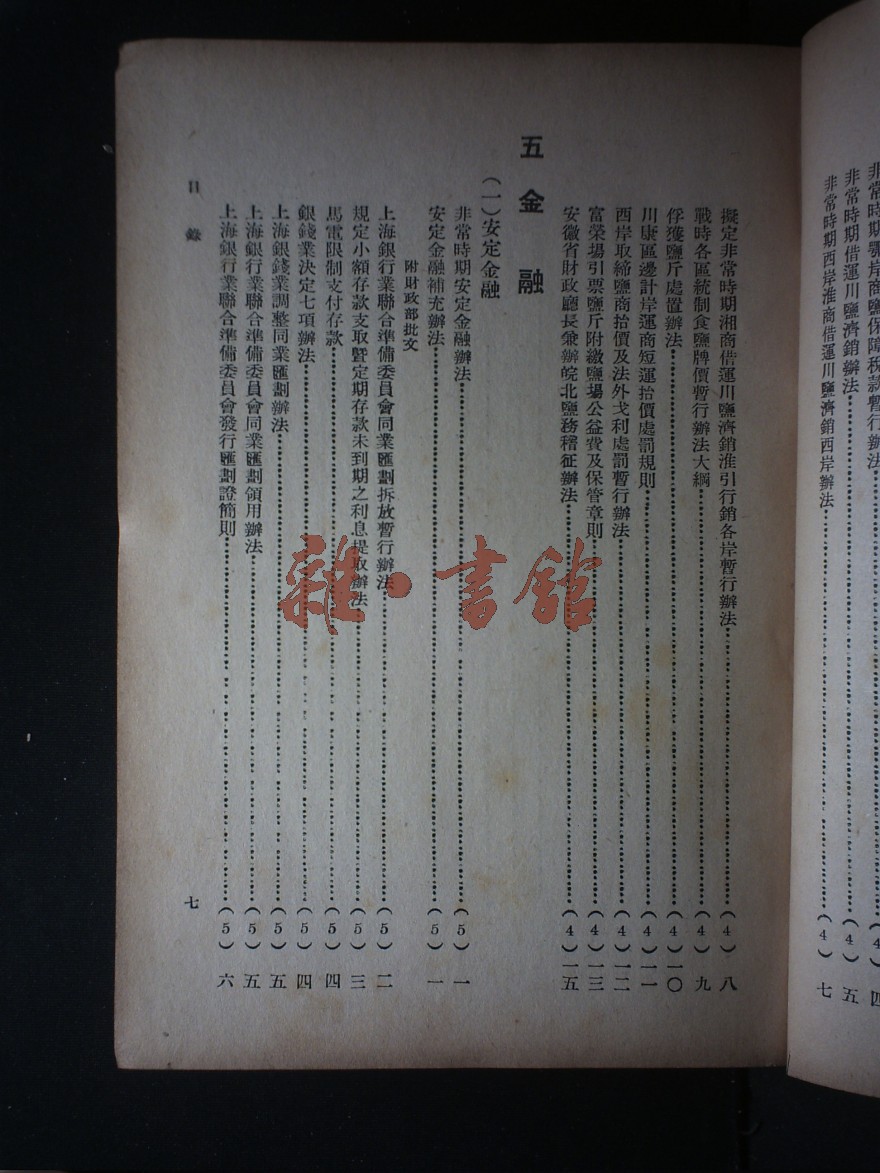 非常時期鄂岸商鹽保障稅款暫行辦法………(4)四
非常時期借運川鹽濟銷辦法………(4)五
非常時期西岸淮商借運川鹽濟銷西岸辦法………(4)七
擬定非常時期湘商借運川鹽濟銷淮引行銷各岸暫行辦法………(4)八
戰時各區統制食鹽牌價暫行辦法大綱………(4)九
俘獲鹽斤處置辦法………(4)一〇
川康區邊計岸運商短運抬價處罰規則………(4)一一
西岸取締鹽商抬價及法外弋利處罰暫行辦法………(4)一二
富榮場引票鹽斤附繳鹽場公益費及保管章則………(4)一三
安徽省財政廳長兼辦皖北鹽務稽征辦法………(4)一五
五 金 融
(一)安定金融
非常時期安定金融辦法………(5)一
安定金融補充辦法………(5)一
附財政部批文
上海銀行業聯合準備委員會同業匯劃拆放暫行辦法………(5)二
規定小額存款支取暨定期存款未到期之利息提取辦法………(5)三
馬電限制支付存款………(5)四
銀錢業決定七項辦法………(5)四
上海銀錢業調整同業匯劃辦法………(5)五
上海銀行業聯合準備委員會同業匯劃領用辦法………(5)五
上海銀行業聯合準備委員會發行匯劃證簡則………(5)六
目錄
七
雜·書館